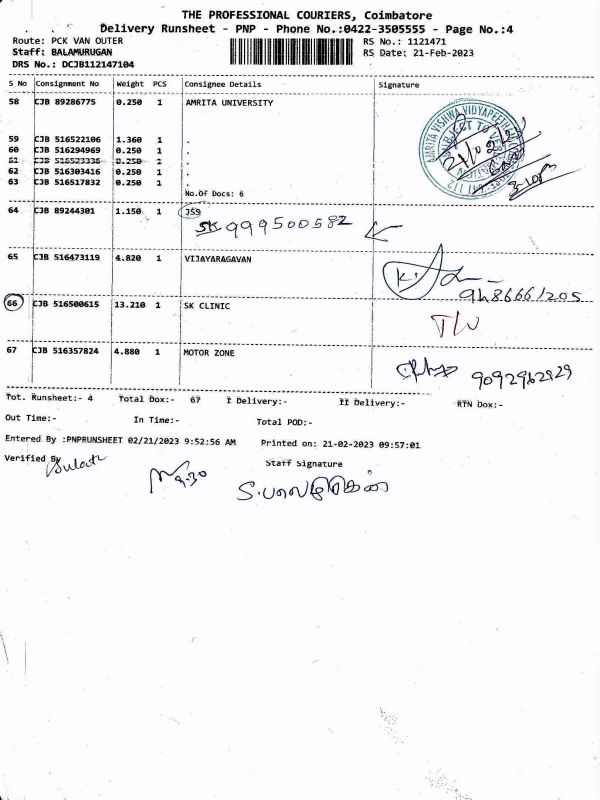 THE PROFESSIONAL COURIERS, Coimbatore
Delivery Runsheet - PNP - Phone No.:0422-3505555 - Page No.:4
Route: PCK VAN OUTER
RS No.: 1121471
Staff: BALAMURUGAN
RS Date: 21-Feb-2023
DRS No.: DCJB112147104
S No Consignment No Weight PCS Consignee Details Signature
58 CJB 89286775 0.250 1 AMRITA UNIVERSITY
59 CJB 516522106 1.360 1 .
60 CJB 516294969 0.250 1 .
61 CJB 516523336 0.250 1 .
62 CJB 516303416 0.250 1 .
63 CJB 516517832 0.250 1 .
No.Of Docs: 6
AMRITA VISHWA VIDYAPEETHAM
SUBJECT TO VERIFICATION
64 CJB 89244301 1.150 1 JSS
SK 999500582
65 CJB 516473119 4.820 1 VIJAYARAGAVAN
9486661205
66 CJB 516500615 13.210 1 SK CLINIC
67 CJB 516357824 4.880 1 MOTOR ZONE
9092962929
Tot. Runsheet:- 4 Total Dox:- 67 I Delivery:- II Delivery:- RTN Dox:-
Out Time:- In Time:- Total POD:-
Entered By :PNPRUNSHEET 02/21/2023 9:52:56 AM Printed on: 21-02-2023 09:57:01
Verified By Staff Signature
9.30